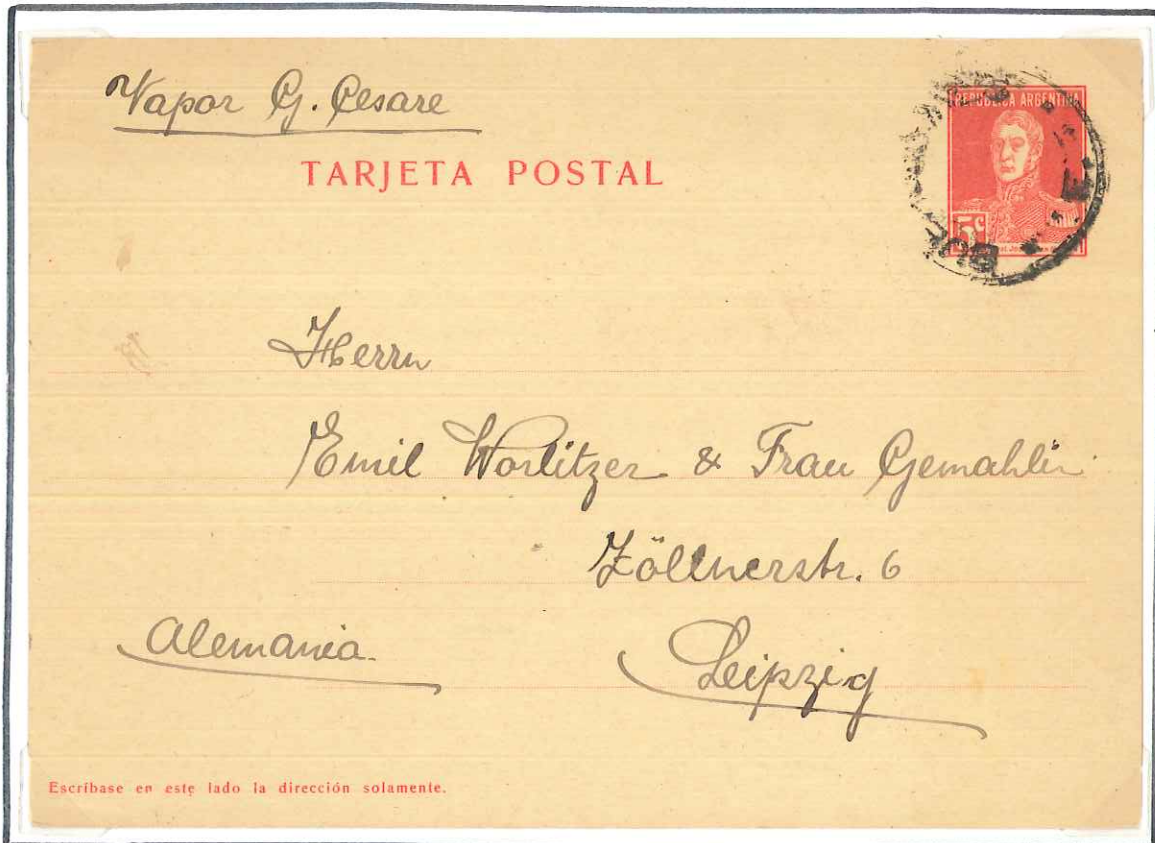 Vapor G. Cesare
TARJETA POSTAL
REPUBLICA ARGENTINA
5c
BUE
Herrn
Emil Worlitzer & Frau Gemahlin
Zöllnerstr. 6
Alemania.
Leipzig
Escríbase en este lado la dirección solamente.